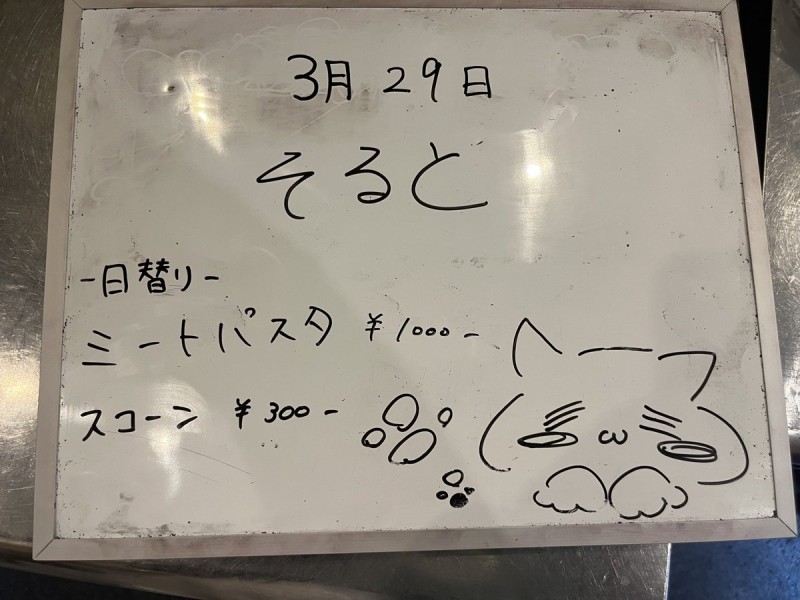 3月29日
そると
-日替り-
ミートパスタ ¥1000-
スコーン ¥300-